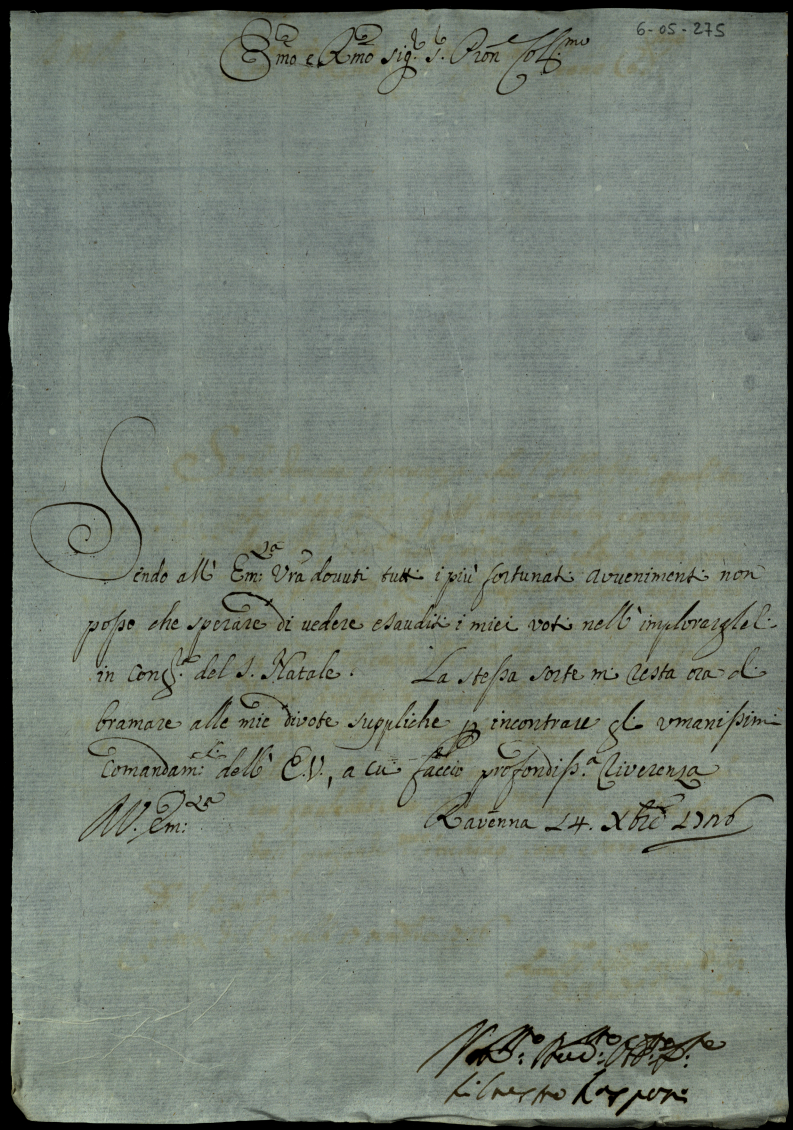 6-05-275
Emo e Rmo Sig.r S. Pron Coll.mo
Sendo all' Em:za Vra dovuti tutti i più fortunati avvenimenti non
posso che sperare di vedere esauditi i miei voti nell' implorargleli
in cong.ra del S. Natale. La stessa sorte mi resta ora di
bramare alle mie divote suppliche p incontrare gli umanissimi
Comandam:ti dell' E.V., a cui faccio profondiss.a Riverenza
Di V. Em:za Ravenna 14. Xbre 1726
Silvestro Rasponi